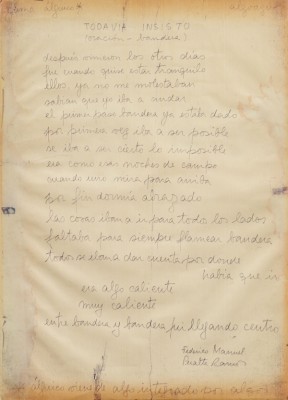 TODAVIA INSISTO
(oración-bandera)
después vinieron los otros dias
fue cuando quise estar tranquilo
ellos, ya no me molestaban
sabian que yo iba a andar.
el primer paso bandera ya estaba dado
por primera vez iba a ser posible
se iba a ser cierto lo imposible
era como esas noches de campo
cuando uno mira para arriba
por fin dormia abrazado
las cosas iban a ir para todos los lados
faltaba para siempre flamear bandera
todos se iban a dar cuenta por donde
había que ir
era algo caliente
muy caliente
entre bandera y bandera centro
Federico Manuel
Peralta Ramos
algo integrado por algos